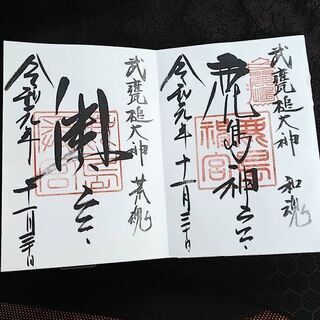 武甕槌大神 和魂
鹿島神宮
鹿島神宮
令和元年 十一月三十日
武甕槌大神 荒魂
奥宮
令和元年 十一月三十日